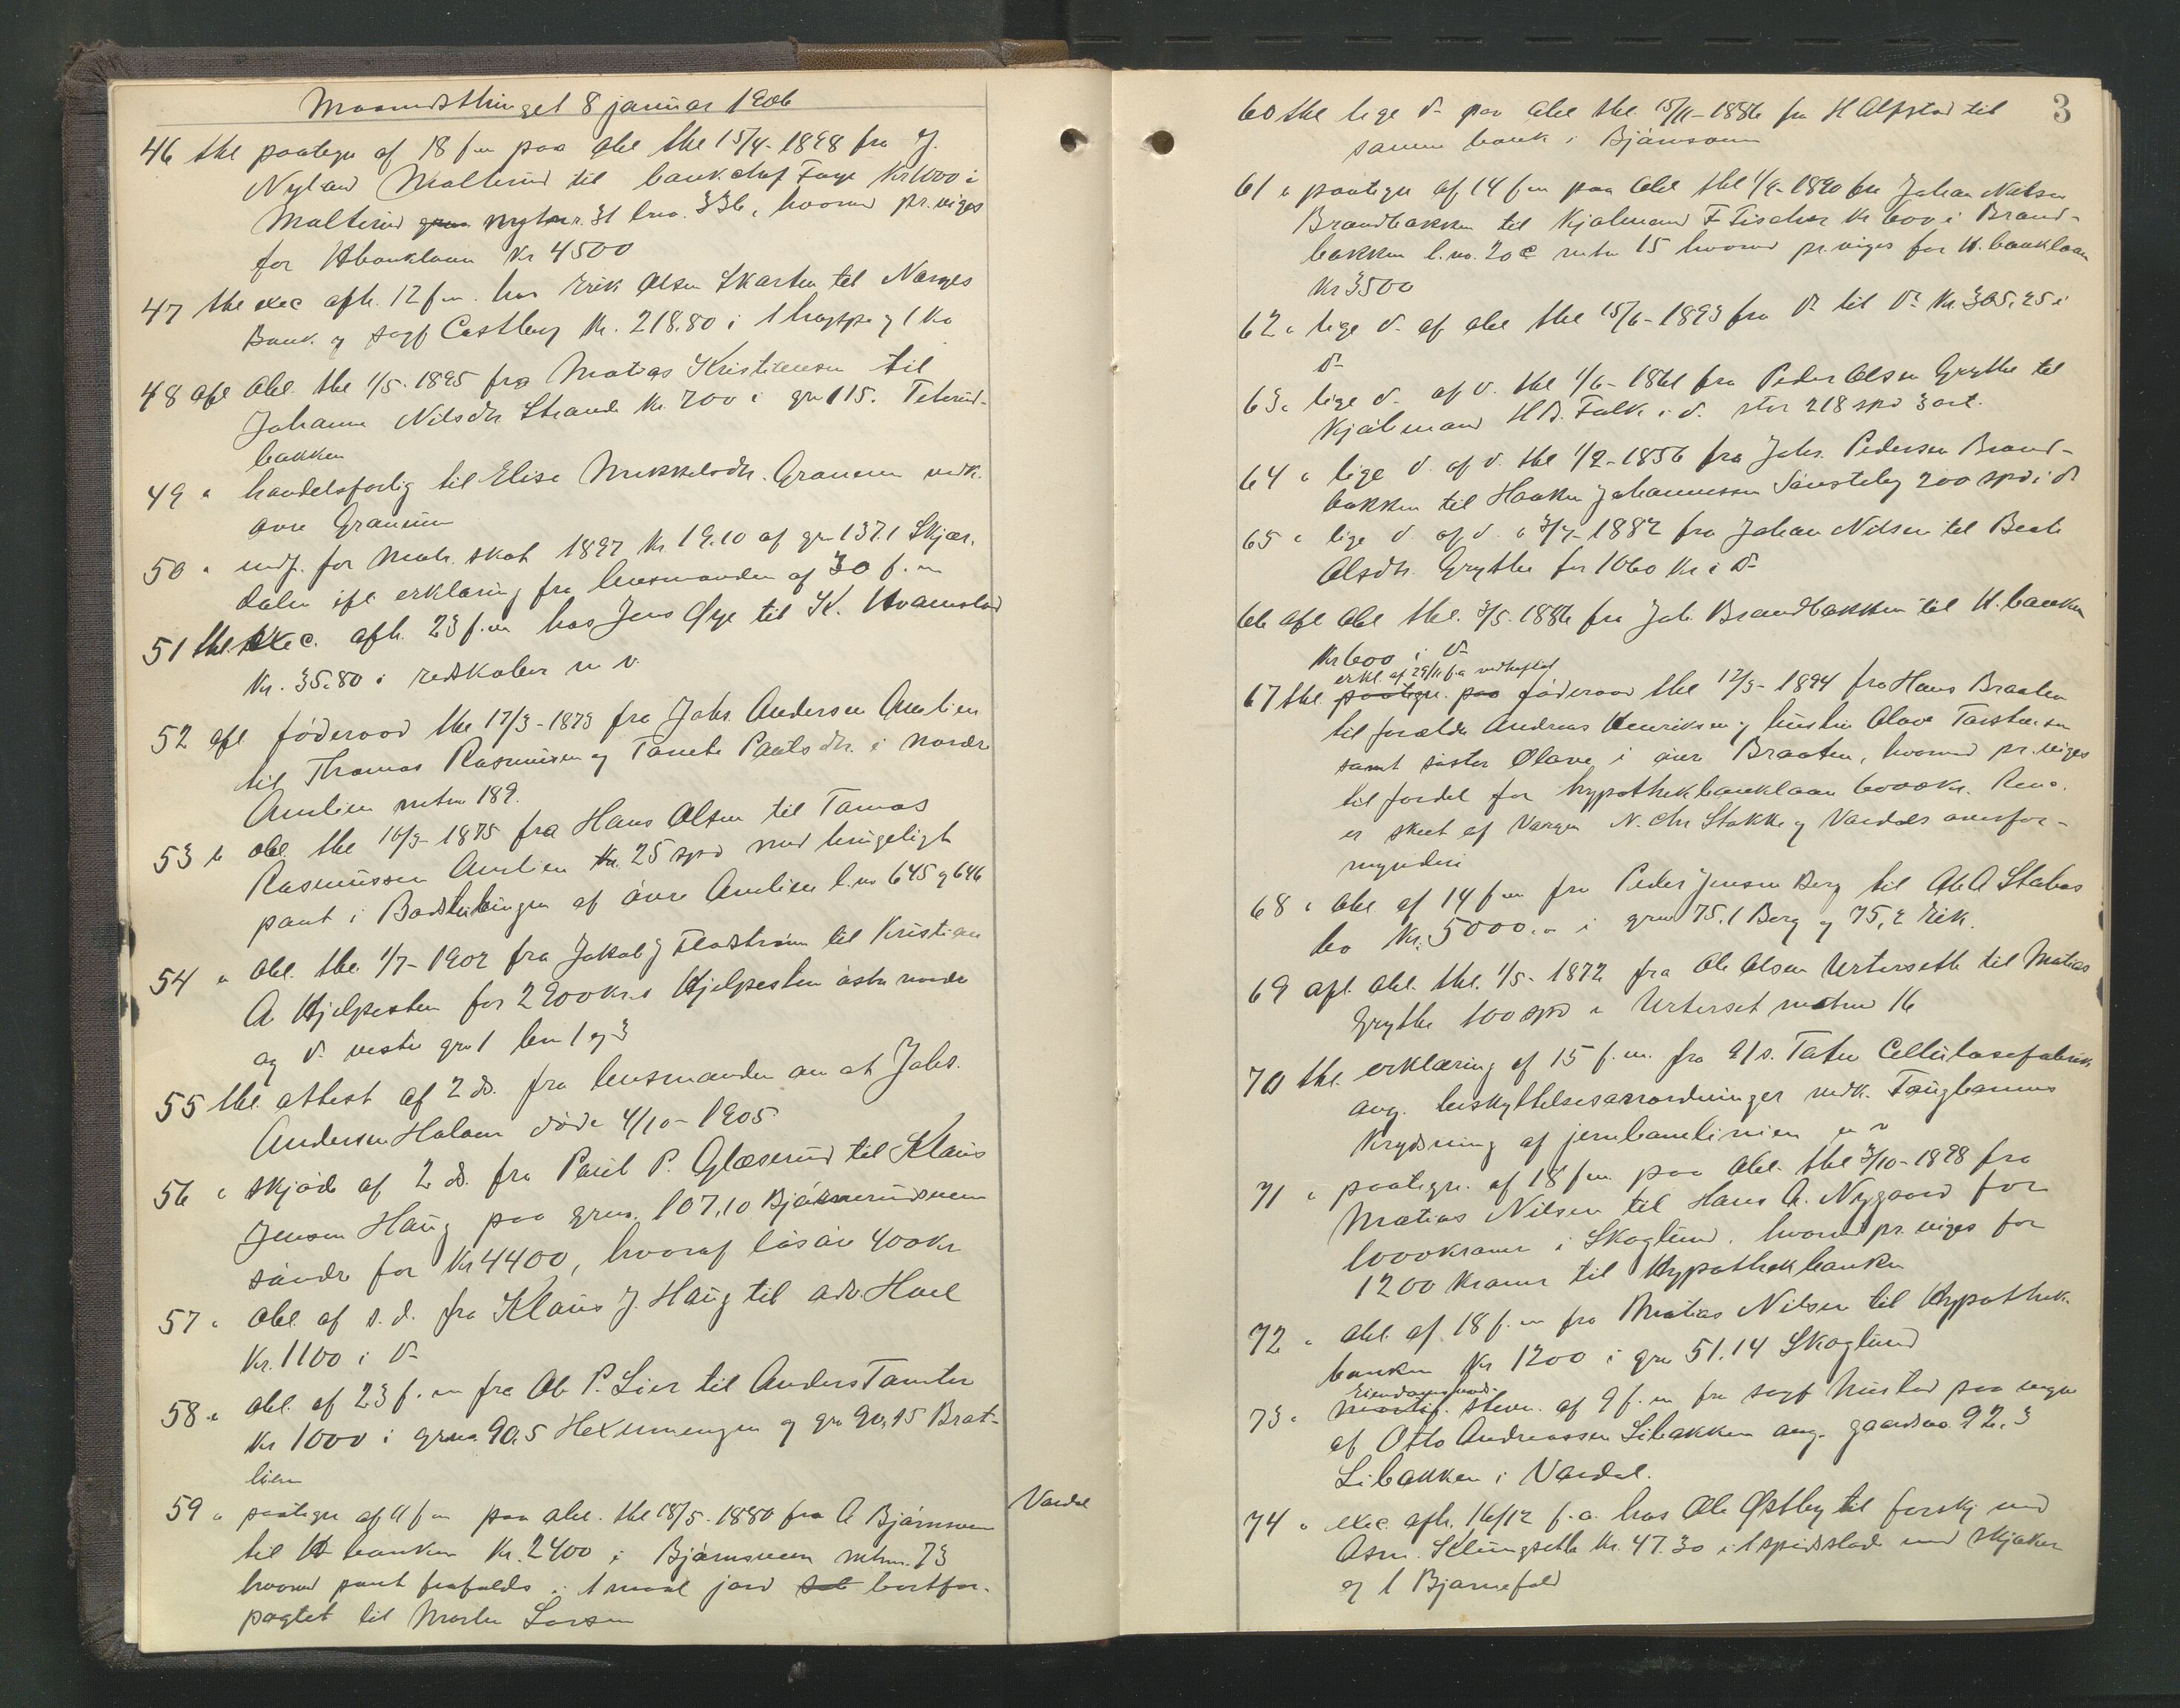 Maanedsthinget 8 januar 1906
46 thl paategn af 18 f.m paa obl thl 15/4-1898 fra J.
Nyland Malterud til bankchef Faye Kr 1000 i
Malterud mtnr. 31 lno. 336, hvorved pr. viges
for Hbanklaan Kr 4500
47 thl exec afh. 12 f.m. hos Erik Olsen Skarten til Norges
Bank og sagf Castberg Kr. 218.80 i 1 hoppe og 1 ko
48 afl obl. thl 1/5-1895 fra Matias Kristiansen til
Johanne Nilsdtr Strande Kr. 700 i gn 115. Teterud-
bakken
49 " handelsforlig til Elise Mikkelsdtr. Granum vedk.
øvre Granum
50 " udl. for Matr. skat 1897 Kr. 19.10 af gn 137.1 Skjær-
dalen ifl erklæring fra lensmanden af 30 f.m
51 thl. exec. afh. 23 f.m hos Jens Øye til K. Hvamstad
Kr. 35.80 i redskaber m v.
52 afl føderaad thl 17/3-1873 fra Johs. Andersen Amlien
til Thomas Rasmussen og Tomete Paulsdtr. i nordre
Amlien mtnr 189.
53 " obl thl 16/3-1875 fra Hans Olsen til Tomas
Rasmussen Amlien 25 spd mod tingligt
pant i Badstubingen af øvre Amlien l.no 645 og 646
54 " obl. thl. 1/7-1902 fra Jakob J Flodstrøm til Kristian
A Hjelpesten for 2900 kr. i Hjelpesten østre nordre
og do vestre gn 1 bn 1 og 3
55 thl. attest af 2 ds. fra lensmanden om at Johs.
Andersen Holom døde 4/10-1905
56 " skjøde af 2 ds. fra Paul P. Glæserud til Klaus
Jensen Haug paa grno. 107,10 Bjørnerudsveen
søndre for Kr 4400, hvoraf løsøre 400 kr
57 " obl. af s. d. fra Klaus J. Haug til adv. Hoel
Kr. 1100 i do
58 " obl. af 23 f.m fra Ole P. Lier til Anders Tomter
Kr 1000 i grno. 90.5 Hexumengen og gn 90,15 Brat-
lien
59 " paategn af 11 f.m paa obl. thl 18/5-1880 fra A Bjørnsveen Vardal
til H banken Kr. 2400 i Bjørnsveen mtnr. 73
hvorved pant frafaldes i 1 maal jord bortfor-
pagtet til Martin Larsen
3
60 thl lige do paa obl thl 15/11-1886 fra H Alfstad til
samme bank i Bjørnsveen
61 " paategn af 14 f.m paa obl thl 1/9-1890 fra Johan Nilsen
Brandbakken til Kjøbmand F Fischer Kr 600 i Brand-
bakken l.no. 20c mtnr 15 hvorved pr. viges for H. banklaan
Kr 3500
62 " lige do af obl thl 15/6-1893 fra do til do Kr. 305.25 i
do
63 " lige do af do thl 1/6-1861 fra Peder Olsen Grythe til
Kjøbmand H B. Falk i do stor 218 spd 3 ort.
64 " lige do af do thl 1/2-1856 fra Johs. Pedersen Brand-
bakken til Haaken Johannessen Sønsteby 200 spd i do
65 " lige do af do " 3/7-1882 fra Johan Nilsen til Beate
Olsdtr. Grythe for 1060 Kr i do
66 afl obl thl. 3/5-1886 fra Joh. Brandbakken til H. banken
Kr 600 i do
erkl. af 29/11 f.a vedheftet
67 thl paategn. paa føderaad thl 12/3-1894 fra Hans Braaten
til forældre Andreas Henriksen og hustru Olave Torstensen
samt søster Olave i øvre Braaten, hvorved pr. viges
til fordel for hypothekbanklaan 6000 Kr. Reno.
er skeet af Værgen N. Chr Stokke og Vardals overfor-
mynderi
68 " obl. af 14 f.m fra Peder Jensen Berg til Ole A Stabos
bo Kr. 5000.00 i grno 75.1 Berg og 75,2 Eik.
69 afl. obl. thl. 1/5-1872 fra Ole Olsen Urterseth til Matias
Grythe 100 spd i Urterset mtnr 16
70 thl. erklæring af 15 f.m. fra A/s. Toten Cellulosefabrik
ang. beskyttelsesanordninger vedk. Taugbanens
krydsning af jernbanelinien m v
71 " paategn. af 18 f.m. paa obl. thl 3/10-1898 fra
Matias Nilsen til Hans A. Nygaard for
1000 kroner i Skoglund, hvorved pr. viges for
1200 Kroner til Hypothekbanken
72 " obl. af 18 f.m fra Matias Nilsen til Hypothek-
banken Kr 1200 i grn 51.14 Skoglund
Eiendomsdoms-
73 " stevn. af 9 f.m fra sagf Mustad paa vegne
af Otto Andreassen Libakken ang. gaardsno 92.3
Libakken i Vardal.
74 " exec. afh. 16/12 f.a. hos Ole Østby til forskj ved
Asm. Klungseth Kr. 47.30 i 1 spidsslæde med skjæker
og 1 Bjørnefeld